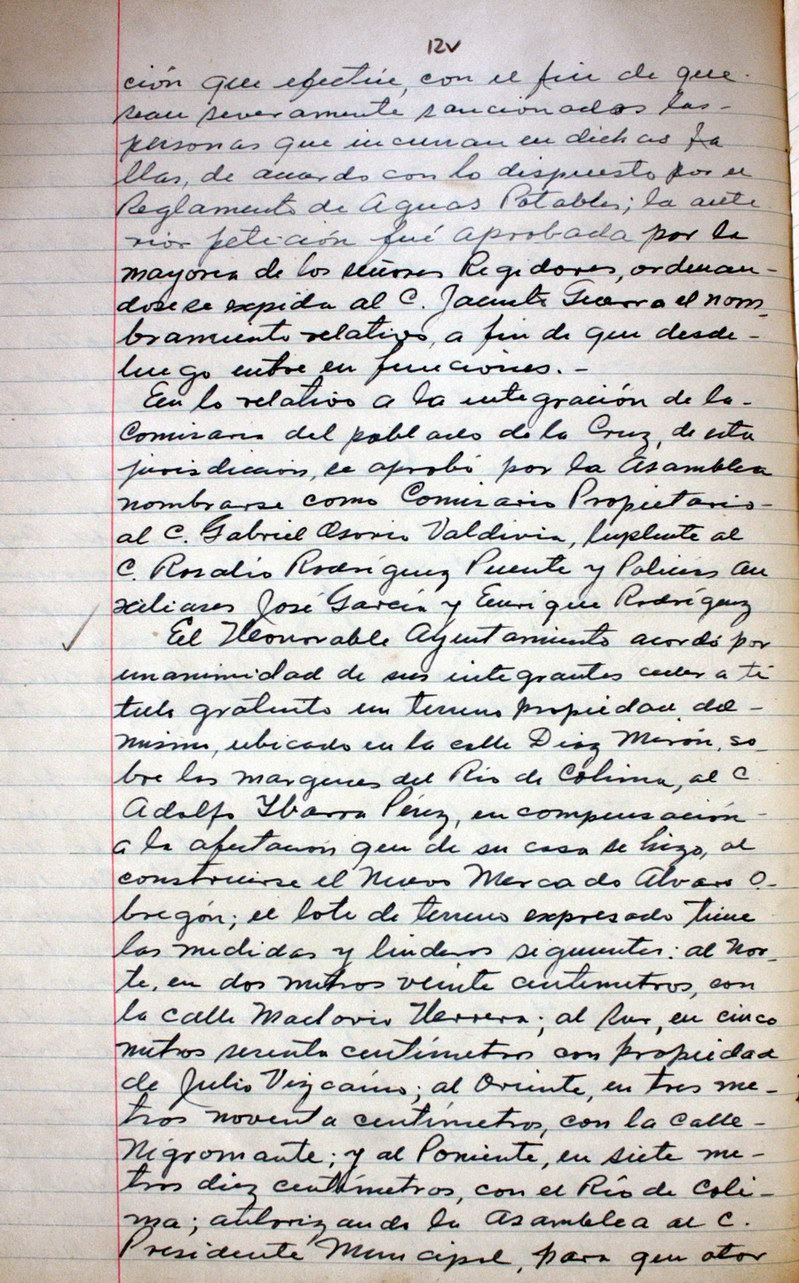 12v
ción que efectúe, con el fin de que
sean severamente sancionados las-
personas que incurran en dichas fa
llas, de acuerdo con lo dispuesto por el
Reglamento de Aguas Potables; la ante
rior petición fué aprobada por la
mayoria de los señores Regidores, ordenan-
dose se expida al C. Jacinto Guerra el nom-
bramiento relativo, a fin de que desde-
luego entre en funciones.-
En lo relativo a la integración de la-
Comisaria del poblado de la Cruz, de esta
jurisdiccion, se aprobó por la Asamblea
nombrarse como Comisario Propietario-
al C. Gabriel Osorio Valdivia, Suplente al
C. Rosalio Rodríguez Puente y Policias Au
xiliares José García y Enrique Rodríguez
El Honorable Ayuntamiento acordó por
unanimidad de sus integrantes ceder a ti
tulo gratuito un terreno propiedad del-
mismo, ubicado en la calle Diaz Mirón, so-
bre las margenes del Rio de Colima, al C.
Adolfo Ybarra Pérez, en compensación-
a la afectacion que de su casa se hizo, al
construirse el Nuevo Mercado Alvaro O-
bregón; el lote de terreno expresado tiene
las medidas y linderos siguientes: al Nor-
te, en dos metros veinte centimetros, con
la calle Maclovio Herrera; al Sur, en cinco
metros sesenta centímetros con propiedad
de Julio Vizcaíno; al Oriente, en tres me-
tros noventa centímetros, con la Calle-
Nigromante; y al Poniente, en siete me-
tros diez centímetros, con el Río de Coli-
ma; autorizando la Asamblea al C.
Presidente Municipal, para que otor